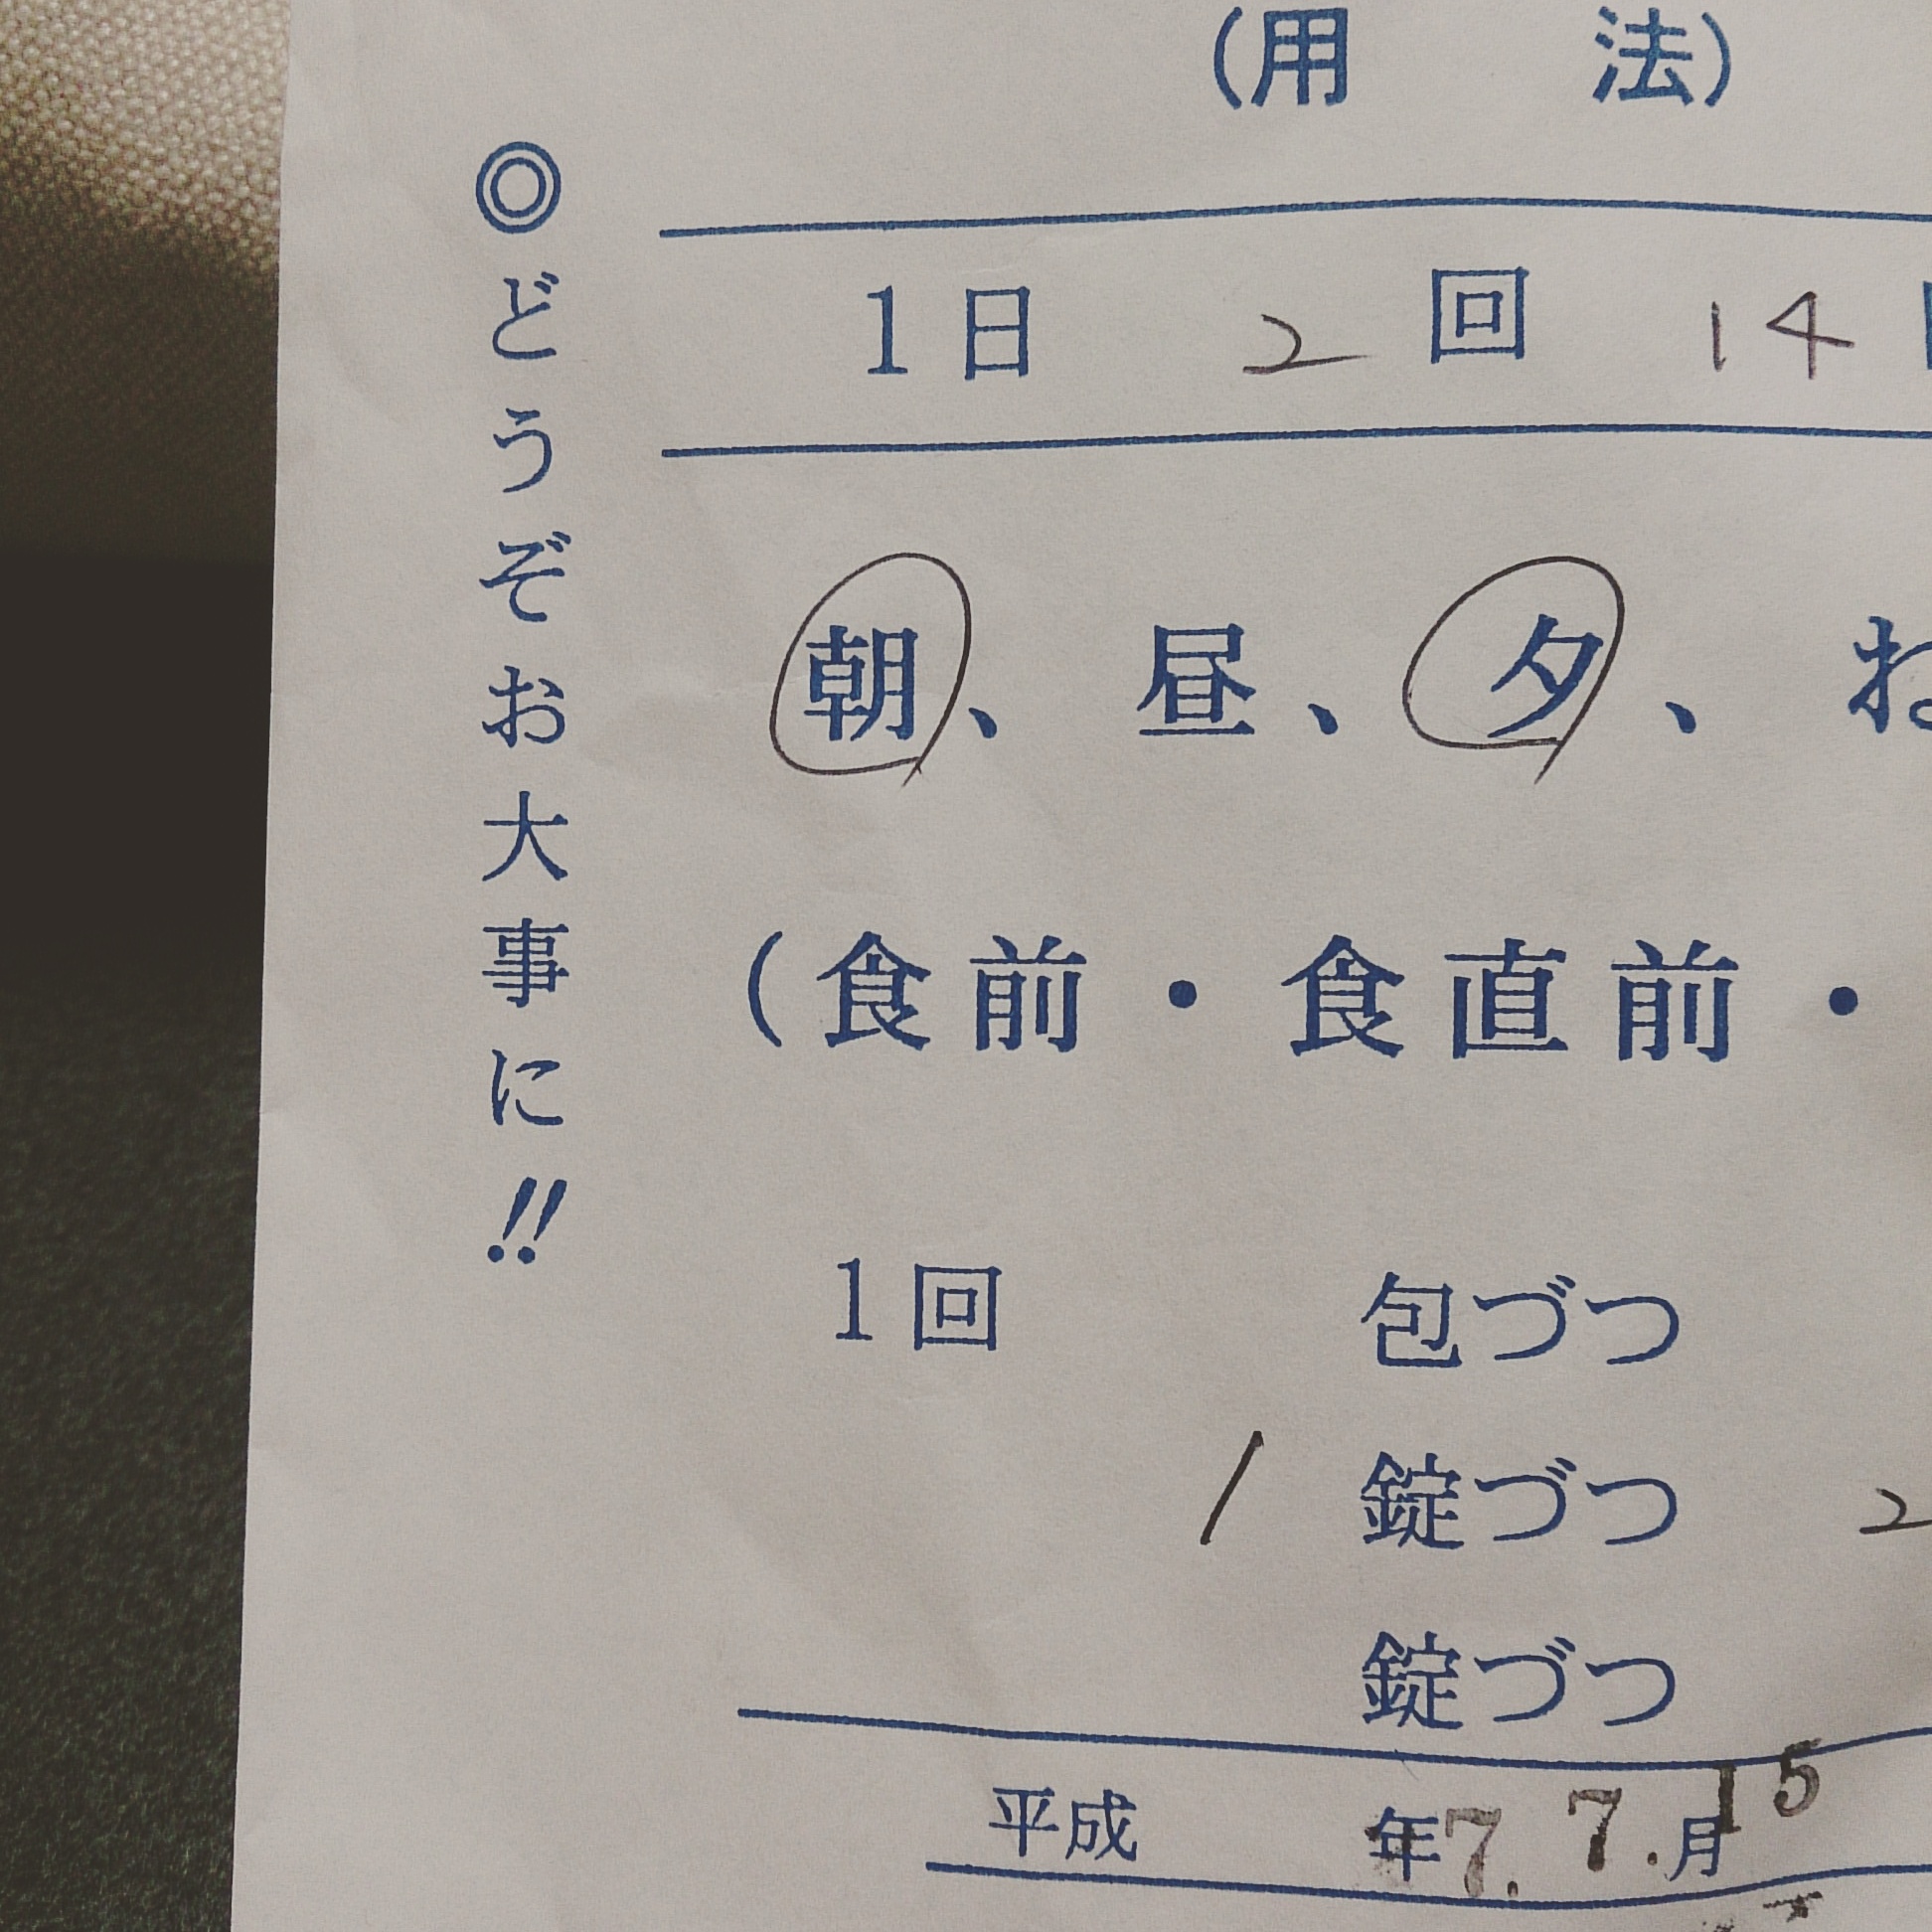 (用 法)
◎どうぞお大事に!!
1日 2 回 14
朝、昼、夕、
(食前・食直前・
1回 包づつ
1 錠づつ 2
錠づつ
平成 年7. 7. 月15